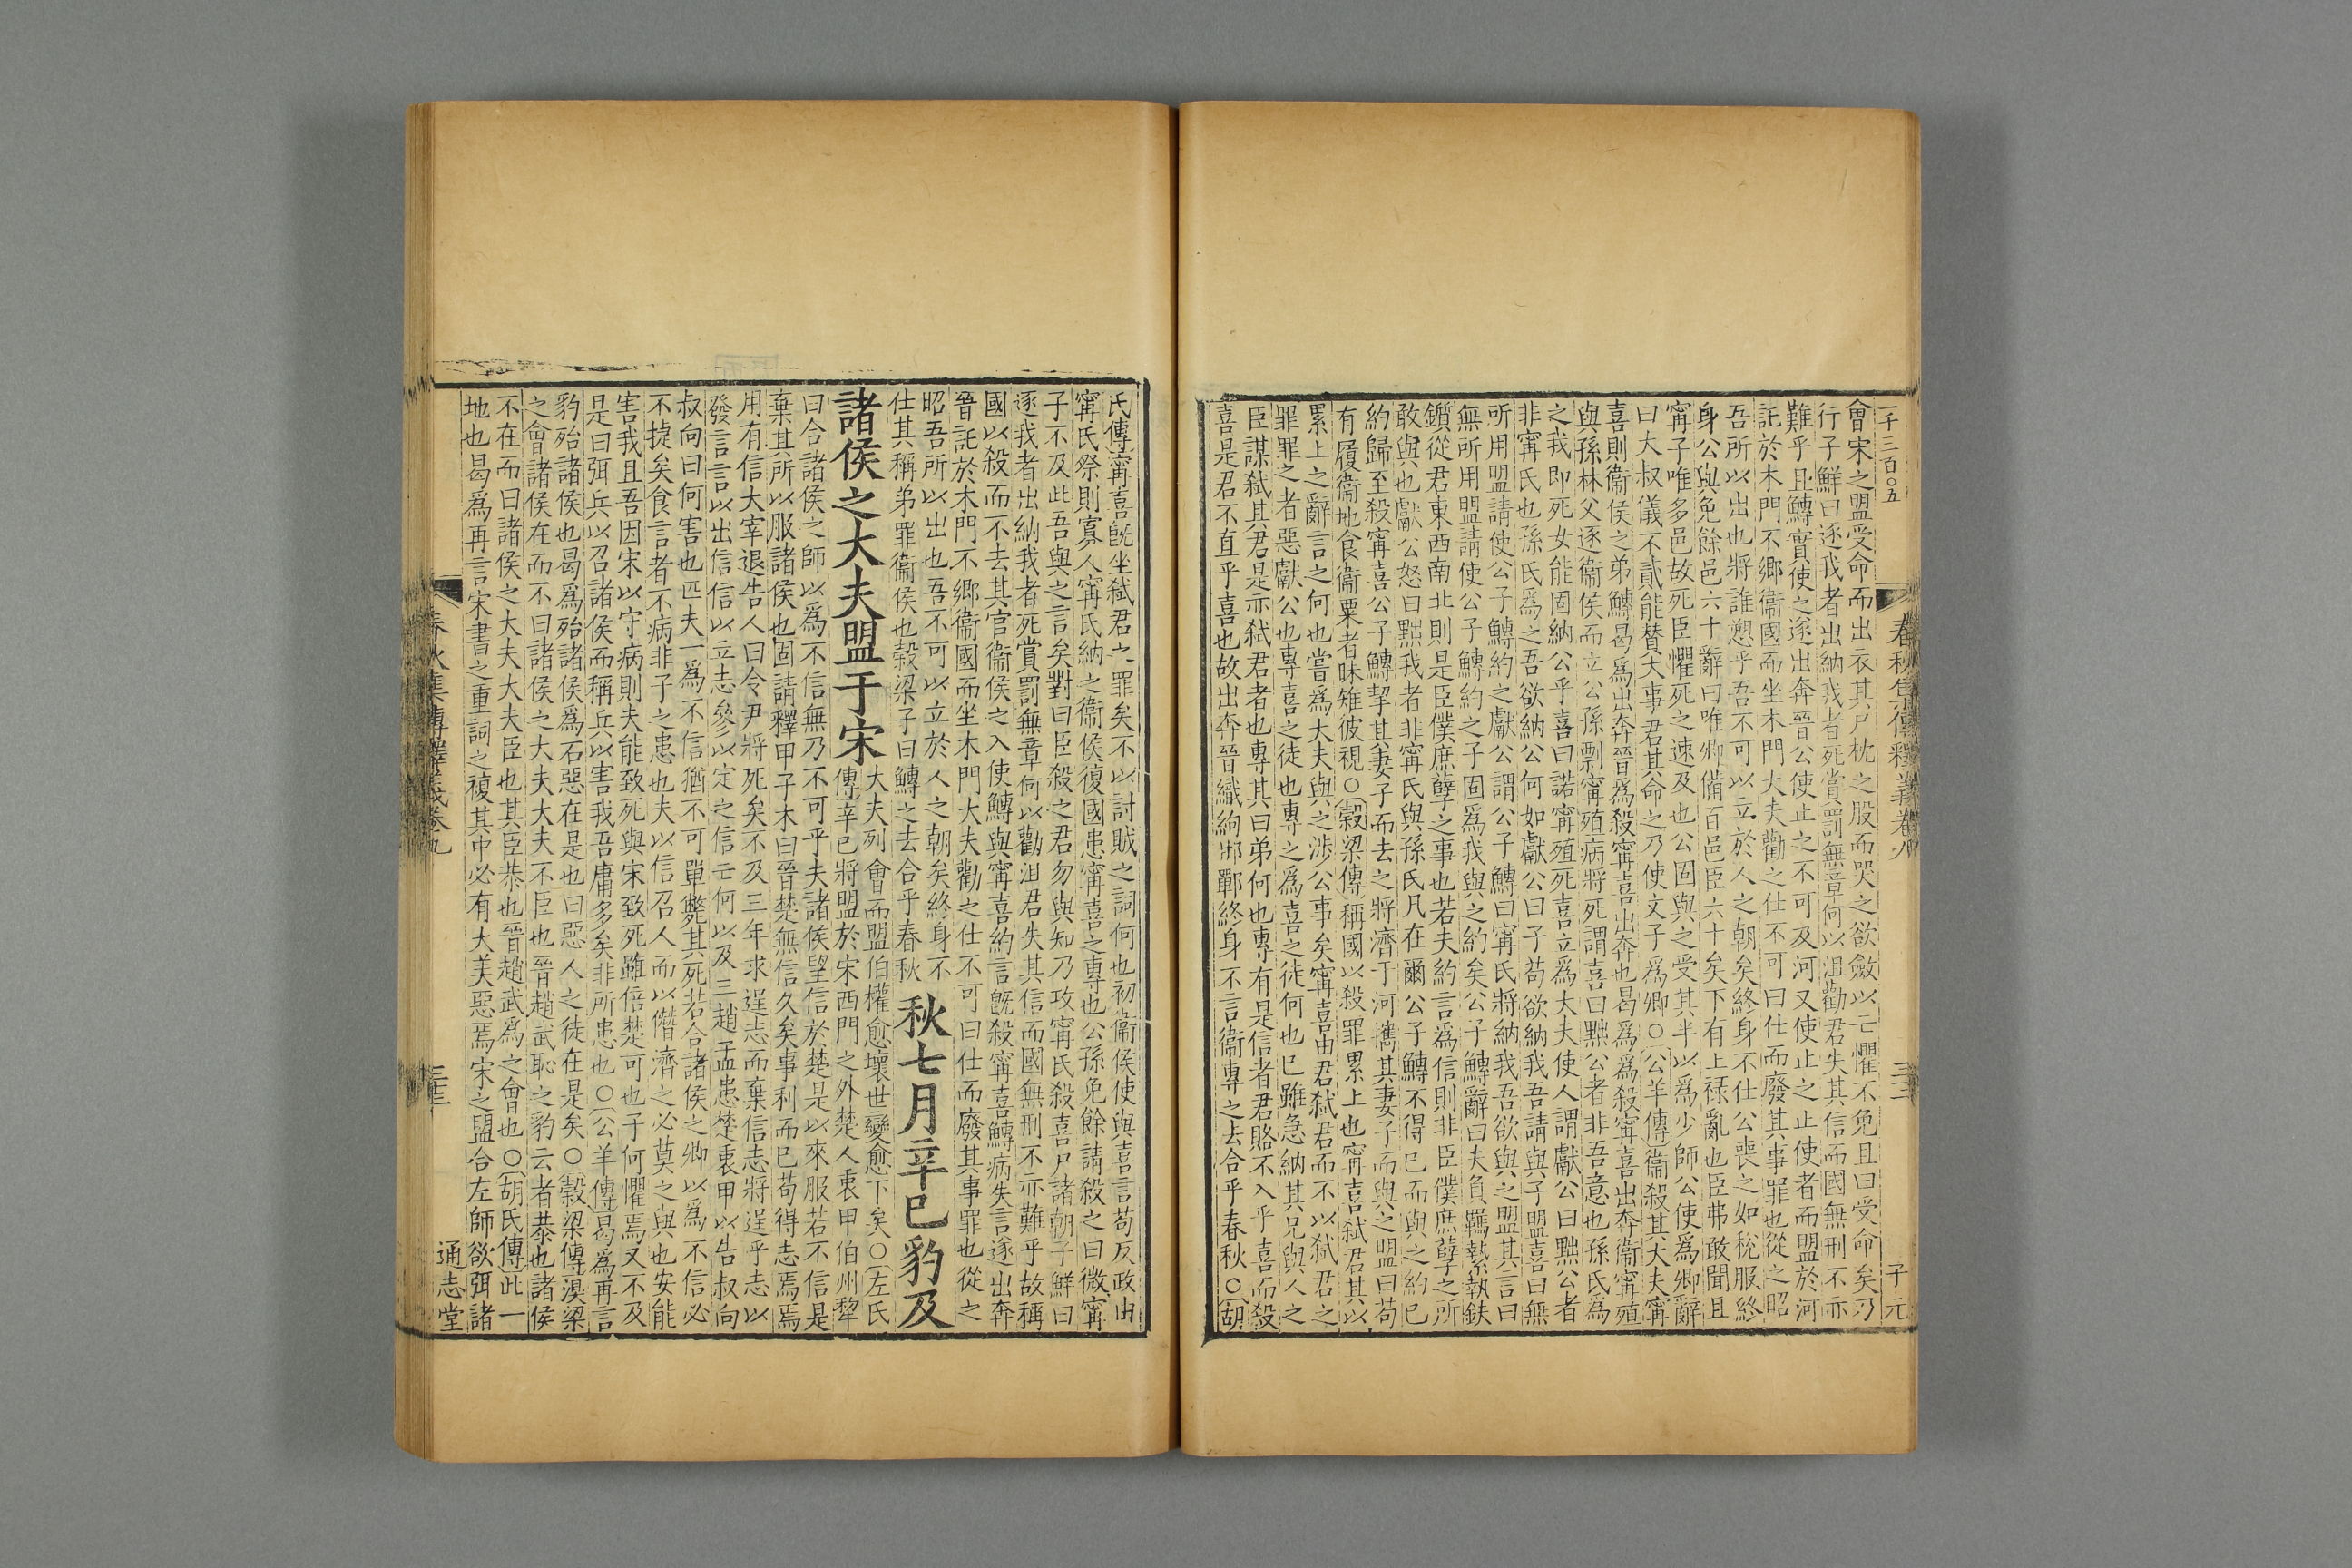 千三百〇五
春秋集傳釋義卷九
三三
子元
會宋之盟受命而出衣其尸枕之股而哭之欲斂以亡懼不免且曰受命矣乃
行子鮮曰逐我者出納我者死賞罰無章何以沮勸君失其信而國無刑不亦
難乎且鱄實使之遂出奔晉公使止之不可及河又使止之止使者而盟於河
託於木門不鄉衞國而坐木門大夫勸之仕不可曰仕而廢其事罪也從之昭
吾所以出也將誰愬乎吾不可以立於人之朝矣終身不仕公喪之如稅服終
身公與免餘邑六十辭曰唯卿備百邑臣六十矣下有上祿亂也臣弗敢聞且
甯子唯多邑故死臣懼死之速及也公固與之受其半以爲少師公使爲卿辭
曰大叔儀不貳能賛大事君其命之乃使文子爲卿〇公羊傳衞殺其大夫甯
喜則衞侯之弟鱄曷爲出奔晉爲殺甯喜出奔也曷爲爲殺甯喜出奔衞甯殖
與孫林父逐衞侯而立公孫剽甯殖病將死謂喜曰黜公者非吾意也孫氏爲
之我即死女能固納公乎喜曰諾甯殖死喜立爲大夫使人謂獻公曰黜公者
非甯氏也孫氏爲之吾欲納公何如獻公曰子苟欲納我吾請與子盟喜曰無
所用盟請使公子鱄約之獻公謂公子鱄曰甯氏將納我吾欲與之盟其言曰
無所用盟請使公子鱄約之子固爲我與之約矣公子鱄辭曰夫負羈縶執鈇
鑕從君東西南北則是臣僕庶孽之事也若夫約言爲信則非臣僕庶孽之所
敢與也獻公怒曰黜我者非甯氏與孫氏凡在爾公子鱄不得已而與之約已
約歸至殺甯喜公子鱄挈其妻子而去之將濟于河攜其妻子而與之盟曰苟
有履衞地食衞粟者昧雉彼視〇穀梁傳稱國以殺罪累上也甯喜弒君其以
累上之辭言之何也嘗爲大夫與之涉公事矣甯喜由君弒君而不以弒君之
罪罪之者惡獻公也專喜之徒也專之爲喜之徒何也已雖急納其兄與人之
臣謀弒其君是亦弒君者也專其曰弟何也專有是信者君賂不入乎喜而殺
喜是君不直乎喜也故出奔晉織絇邯鄲終身不言衞專之去合乎春秋〇胡
氏傳甯喜旣坐弒君之罪矣不以討賊之詞何也初衞侯使與喜言苟反政由
甯氏祭則寡人甯氏納之衞侯復國患甯喜之專也公孫免餘請殺之曰微甯
子不及此吾與之言矣對曰臣殺之君勿與知乃攻甯氏殺喜尸諸朝子鮮曰
逐我者出納我者死賞罰無章何以勸沮君失其信而國無刑不亦難乎故稱
國以殺而不去其官衞侯之入使鱄與甯喜約言旣殺甯喜鱄病失言遂出奔
晉託於木門不鄉衞國而坐木門大夫勸之仕不可曰仕而廢其事罪也從之
昭吾所以出也吾不可以立於人之朝矣終身不
仕其稱弟罪衞侯也穀梁子曰鱄之去合乎春秋
秋七月辛巳豹及
諸侯之大夫盟于宋
大夫列會而盟伯權愈壞世變愈下矣〇左氏
傳辛巳將盟於宋西門之外楚人衷甲伯州犂
曰合諸侯之師以爲不信無乃不可乎夫諸侯望信於楚是以來服若不信是
棄其所以服諸侯也固請釋甲子木曰晉楚無信久矣事利而已苟得志焉焉
用有信大宰退告人曰令尹將死矣不及三年求逞志而棄信志將逞乎志以
發言言以出信信以立志參以定之信亡何以及三趙孟患楚衷甲以告叔向
叔向曰何害也匹夫一爲不信猶不可單斃其死若合諸侯之卿以爲不信必
不捷矣食言者不病非子之患也夫以信召人而以僭濟之必莫之與也安能
害我且吾因宋以守病則夫能致死與宋致死雖倍楚可也子何懼焉又不及
是曰弭兵以召諸侯而稱兵以害我吾庸多矣非所患也〇公羊傳曷爲再言
豹殆諸侯也曷爲殆諸侯爲石惡在是也曰惡人之徒在是矣〇穀梁傳湨梁
之會諸侯在而不曰諸侯之大夫大夫不臣也晉趙武恥之豹云者恭也諸侯
不在而曰諸侯之大夫大夫臣也其臣恭也晉趙武爲之會也〇胡氏傳此一
地也曷爲再言宋書之重詞之複其中必有大美惡焉宋之盟合左師欲弭諸
春秋集傳釋義卷九
三三
通志堂